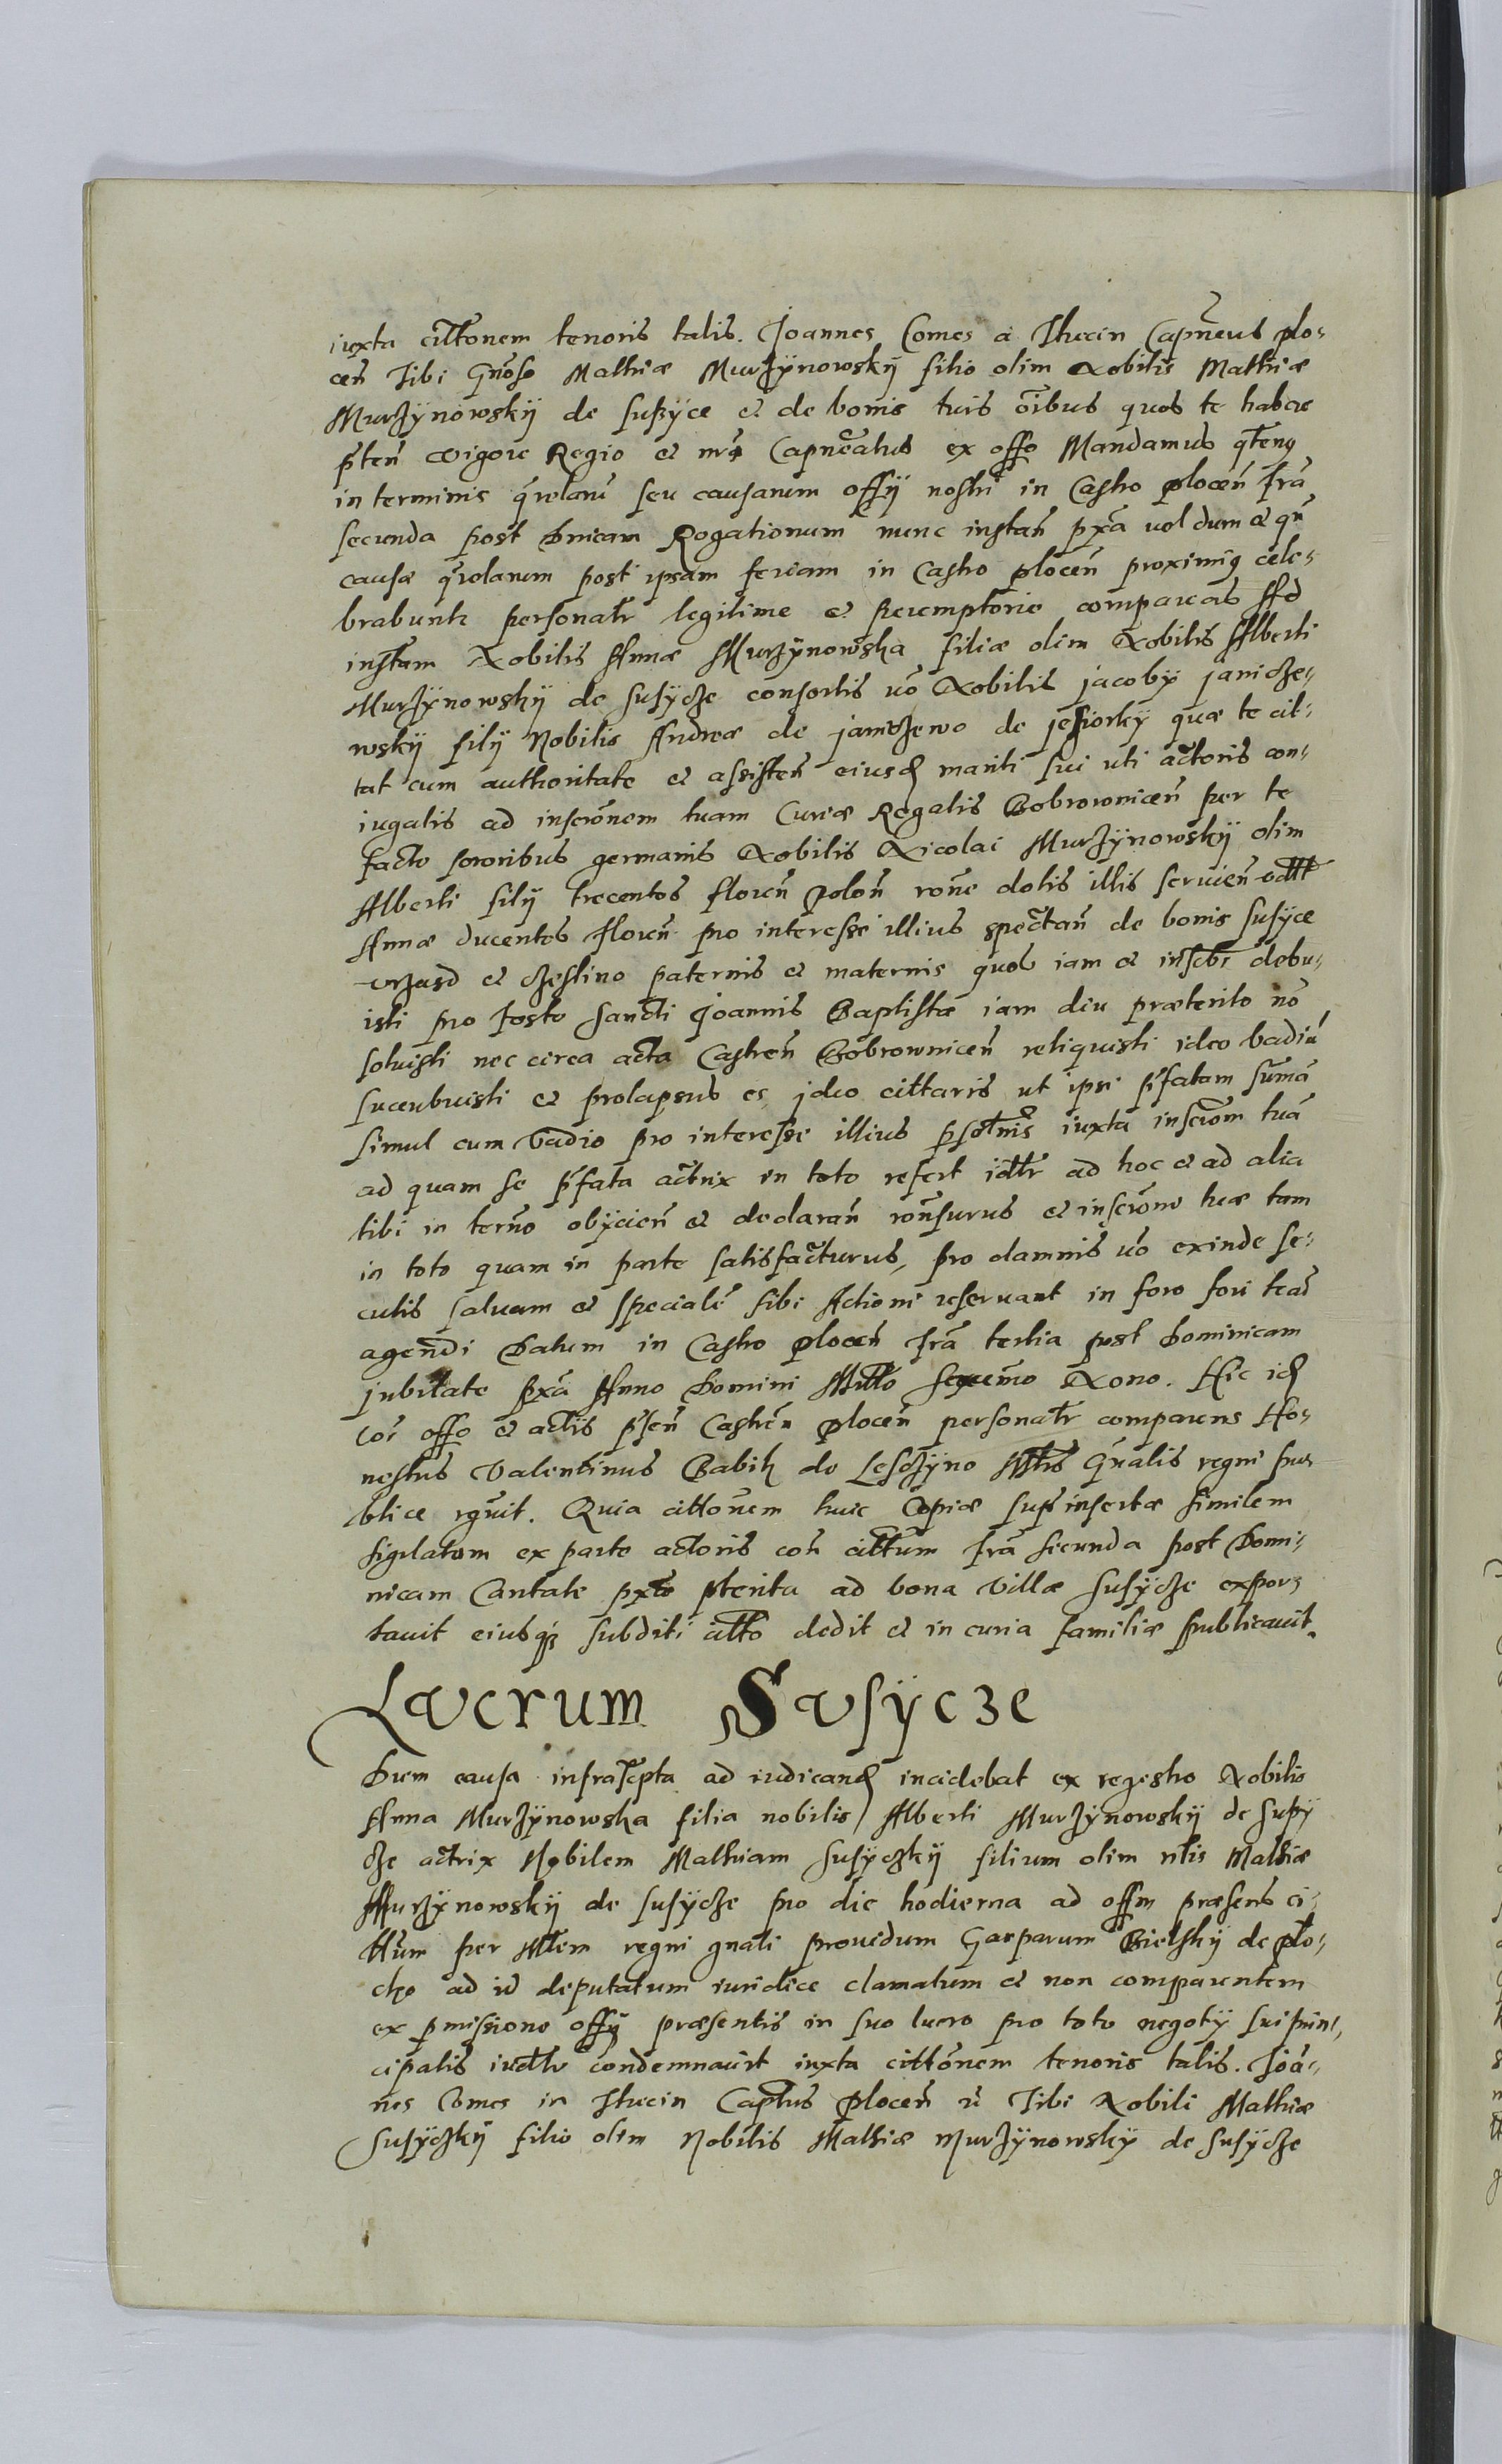 iuxta citt̃onem tenoris talis. Joannes Comes à Thecin Capñeus plo-
ceñ Tibi Gñoso Mathiæ Murzÿnowskij filio olim Nobilis Mathiæ
Murzÿnowskij de Sußÿce et de bonis tuis oĩbus quos te habere
p̃ten̄ Vigore Regio et nrõ Capñeatus ex offo Mandamus qt̃enq
in terminis q̃rolarũ seu causarum offÿ nostri in Castro ploceñ Frã
secunda post Dnicam Rogationum nunc instañ pxã uel dum et qñ
causæ q̃rolarum post ipsam feriam in Castro ploceñ proximiq cele-
brabunt̃ personalr̃ legitime et Peremptorie compareas Ad
instam̃ Nobilis Annæ Murzÿnowska filiæ olim Nobilis Alberti
Murzÿnowskij de Susÿcze consortis uõ Nobilis jacobÿ janicze-
wskij filÿ Nobilis Andreæ de janiczewo de jesiorkÿ quæ te cit-
tat cum authoritate et assisteñ eiusd mariti sui uti actoris con-
iugalis ad inscrõnem tuam Curiæ Regalis Bobrowniceñ per te
facto sororibus germanis Nobilis Nicolai Murzÿnowskij olim
Alberti filÿ trecentos floreñ Poloñ rõne dotis illis servieñ
Annæ ducentos floreñ pro interesse illius spectañ de bonis Susÿce
et paternis et maternis quos iam et debu-
isti pro festo Sancti Joannis Baptistæ iam diu præterito nõ
solvisti nec circa acta Castreñ Bobrowniceñ reliquisti ideo vadiũ
sucubuisti et prolapsus es, ideo cittaris ut ipsi p̃fatam summã
simul cum Vadio pro interesse illius iuxta inscrõem tuã
ad quam se p̃fata actrix in toto refert ad hoc et ad alia
tibi in term̃o obÿcieñ et declarañ rõnsurus et inscrõne tuæ tam
in toto quam in parte satisfacturus, pro damnis uõ exinde se-
cutis salvam et specialẽ sibi Actioni reservant in foro fori
agendi Datum in Castro ploceñ Frã tertia post Dominicam
jubilate pxã Anno Domini Millõ Nono. Hic id
cor̃ offo et actis p̃señ Castreñ ploceñ personalr̃ comparens Ho-
nestus Valentinus Babik de Lesczÿno Mt̃ris Gñalis regni pu-
blice rg̃uit. Quia citt̃onem huic Copiæ sup̃ insertæ similem
sigilatam ex parte actoris coñ citt̃um Frã secunda post Domi-
nicam Cantate pxto pterita ad bona Villæ Susÿcze expor-
tavit eiusq3 subditi citt̃o dedit et in curia familiæ publicavit.
Lucrum Susÿcze
Dum causa infrasc̃pta ad iudicand incidebat ex regestro Nobilis
Anna Murzÿnowska filia nobilis Alberti Murzÿnowskij de Susÿ
cze actrix Nobilem Mathiam Susÿczkij filium olim nt̃is Mathiæ
Murzÿnowskij de Susÿcze pro die hodierna ad offm præsens ci-
tt̃um per Mt̃em regni gñali providum Gasparum Bielskij de plo-
cko ad id deputatum iuridice clamatum et non comparentem
ex p̃missione offÿ præsentis in suo lucro pro toto negotÿ sui prin-
cipalis condemnavit iuxta citt̃onem tenoris talis. Joã-
nes Comes in Thecin Captus Ploceñ Tibi Nobili Mathiæ
Susÿczkij filio olim Nobilis Mathiæ Murzÿnowskÿ de Susÿcze